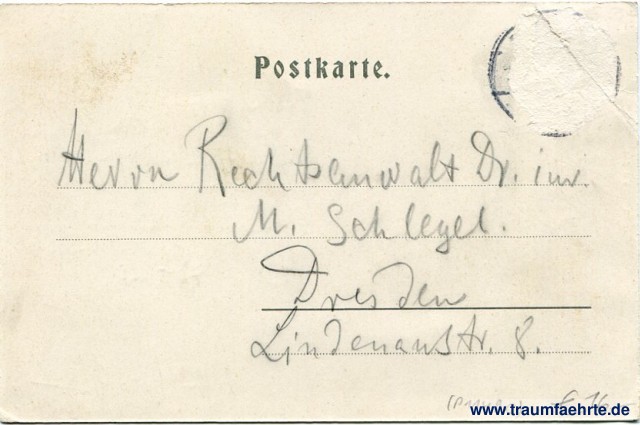 Postkarte.
Herrn Rechtsanwalt Dr. iur.
M. Schlegel.
Dresden
Lindenaustr. 8.
www.traumfaehrte.de